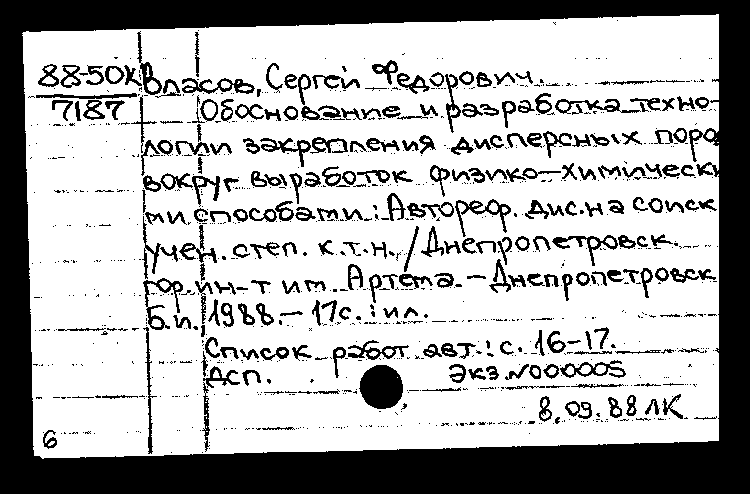 88-50К Власов, Сергей Федорович.
7187 Обоснование и разработка техно-
логии закрепления дисперсных поро
вокруг выработок физико-химически
ми способами: Автореф. дис. на соиск
учен. степ. к.т.н. / Днепропетровск.
гор. ин-т им. Артема. - Днепропетровск
Б.и. 1988. - 17с.: ил.
Список работ авт.: с. 16-17.
ДСП. Экз. N000005
8.09.88 ЛК
6